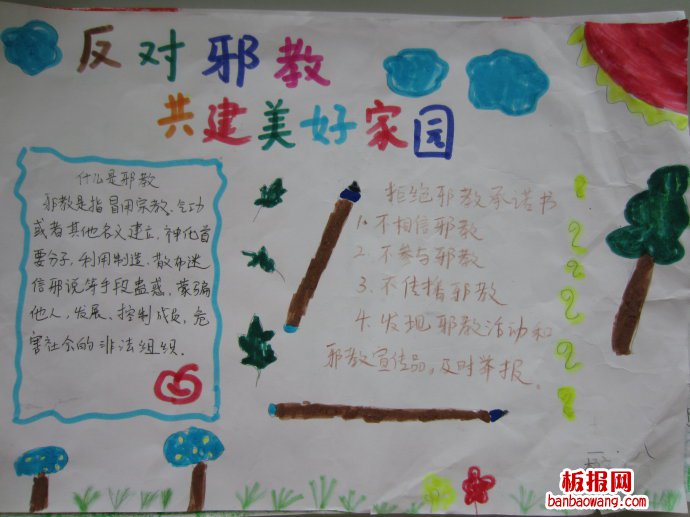 反对邪教
共建美好家园
什么是邪教
邪教是指冒用宗教、气功
或者其他名义建立,神化首
要分子,利用制造、散布迷
信邪说等手段蛊惑、蒙骗
他人,发展、控制成员,危
害社会的非法组织.
拒绝邪教承诺书
1. 不相信邪教
2. 不参与邪教
3. 不传播邪教
4. 发现邪教活动和
邪教宣传品,及时举报。
板报网
banbaowang.com